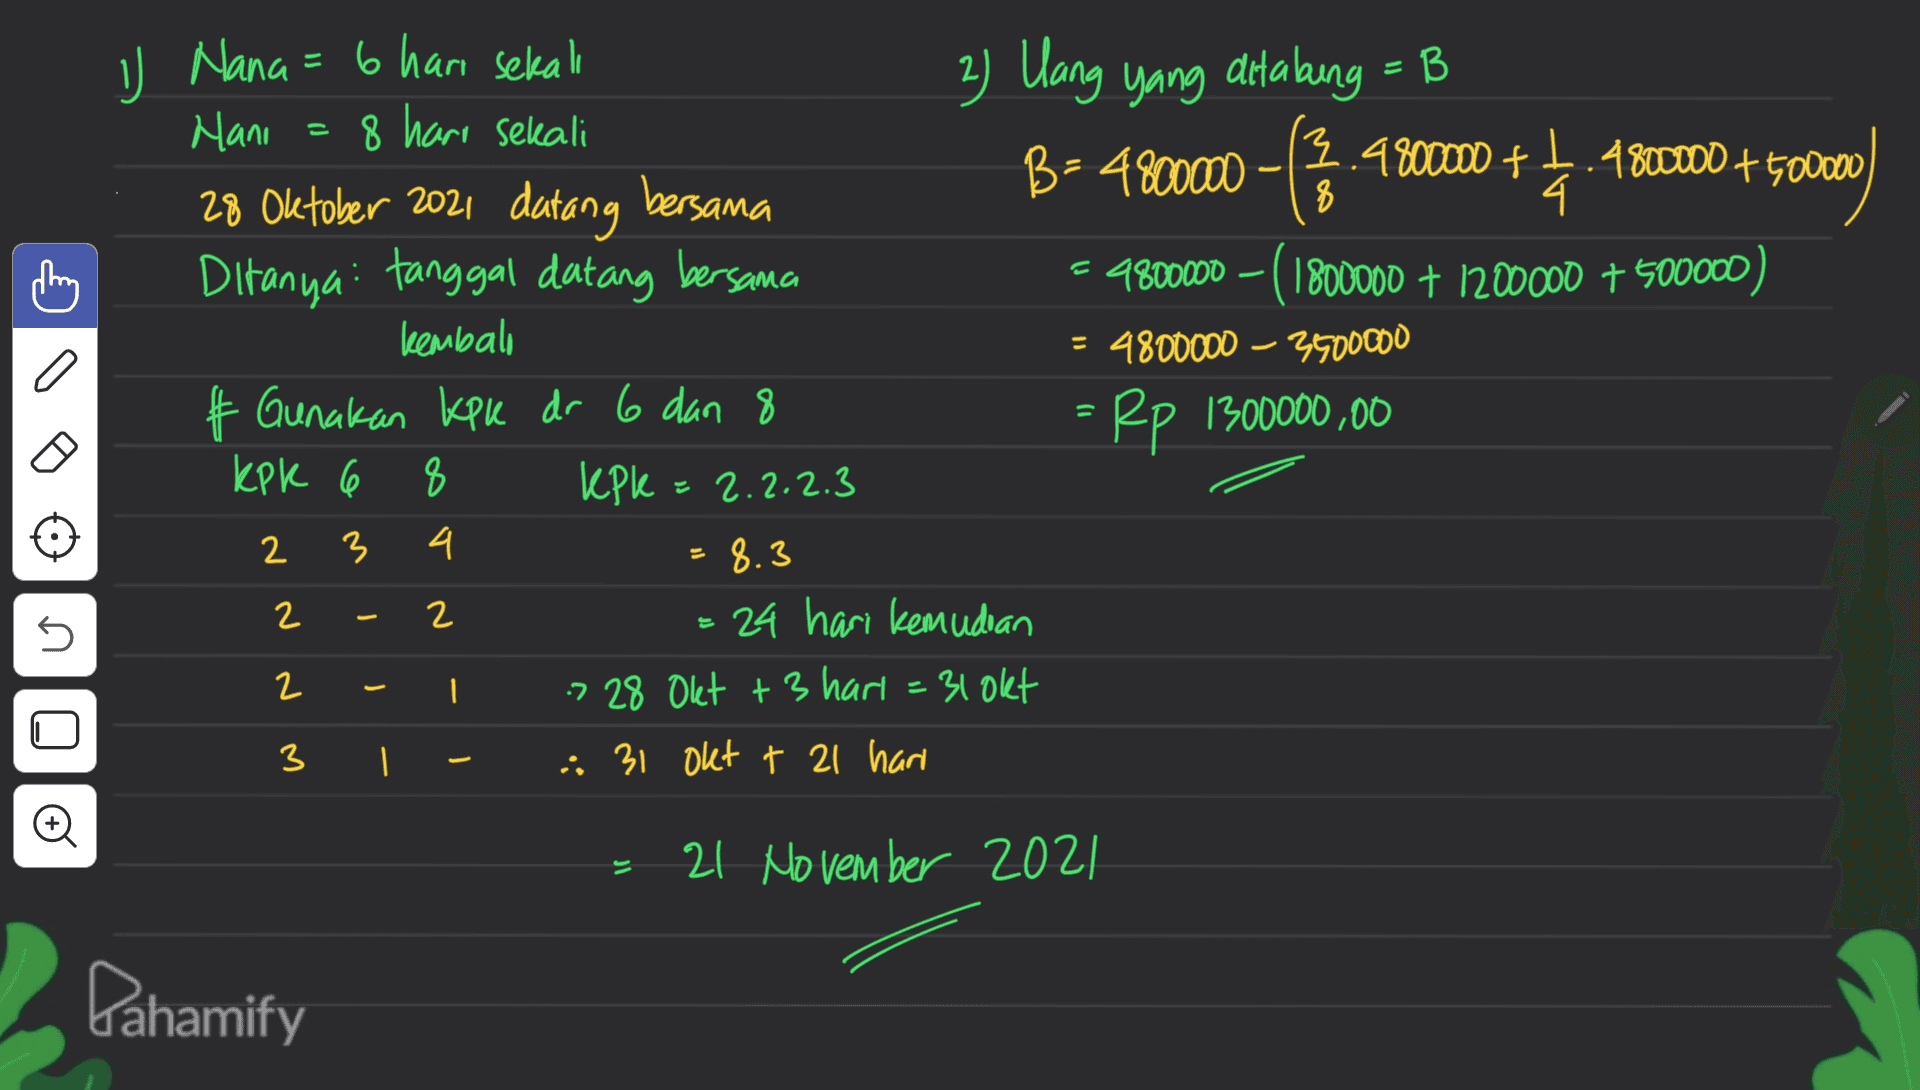 1) Nana = 6 hari sekali
Nani = 8 hari sekali
28 Oktober 2021 datang bersama
Ditanya: tanggal datang bersama
kembali
# Gunakan kpk dr 6 dan 8
kpk 6 8
2 3 4
2 - 2
2 - 1
3 1 -
kpk = 2.2.2.3
= 8.3
= 24 hari kemudian
-> 28 Okt + 3 hari = 31 okt
∴ 31 okt + 21 hari
= 21 November 2021
2) Uang yang ditabung = B
B = 4800000 - (3/8 . 4800000 + 1/4 . 4800000 + 500000)
= 4800000 - (1800000 + 1200000 + 500000)
= 4800000 - 3500000
= Rp 1300000,00
Pahamify